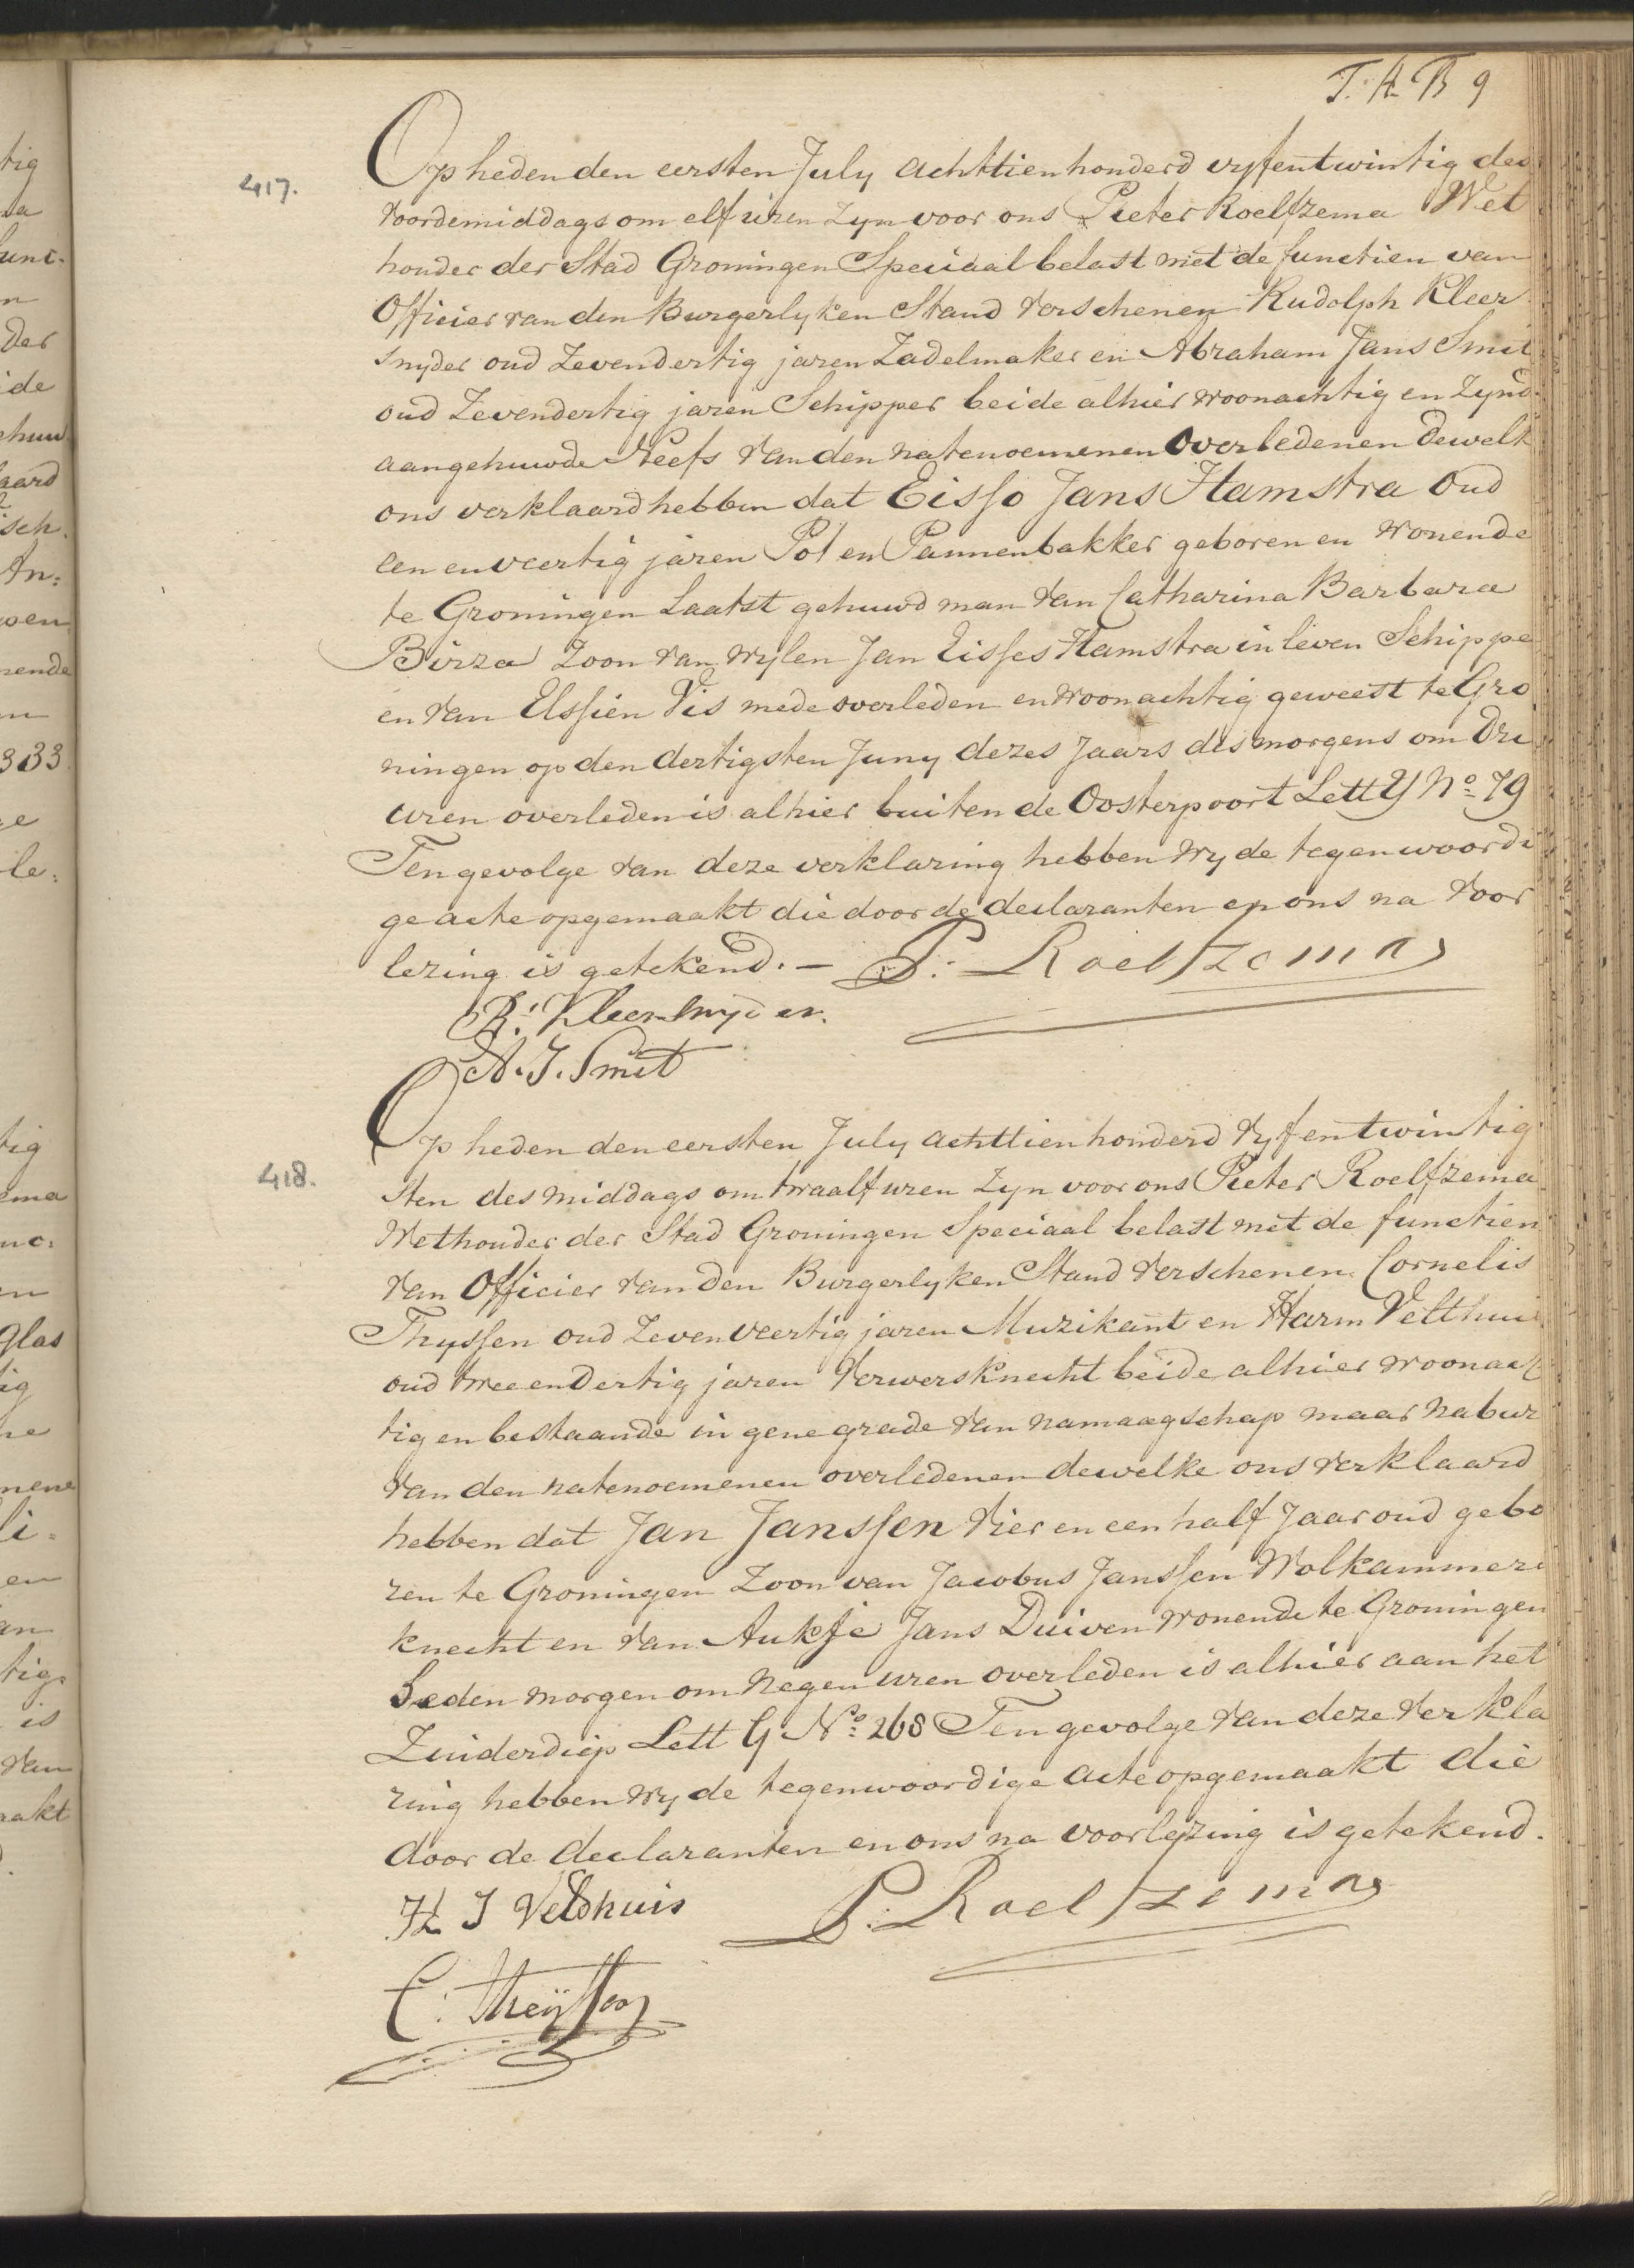 T. A. B 9
417.
Op heden den eersten July achttienhonderd vyfentwintig des
voordemiddags om elf uren zyn voor ons Pieter Roelfzema Wet
houder der Stad Groningen Speciaal belast met de functien van
Officier van den Burgerlyken Stand verschenen Rudolph Kleer
snyder oud Zevendertig jaren Zadelmaker en Abraham Jans Smit
oud Zevendertig jaren Schipper beide alhier woonachtig en zynd
aangehuwde Neefs van den natenoemenen Overledenen dewelk
ons verklaard hebben dat Eisso Jans Hamstra Oud
een en veertig jaren Pot en Pannenbakker geboren en wonende
te Groningen Laatst gehuwd man van Catharina Barbara
Birza Zoon van wylen Jan Eisses Hamstra in leven Schippe
en van Elssien Vis mede overleden en woonachtig geweest te Gro
ningen op den dertigsten Juny dezes Jaars des morgens om Dri
uren overleden is alhier buiten de Oosterpoort Lett Y No 79
Ten gevolge van deze verklaring hebben wy de tegenwoordi
ge acte opgemaakt die door de declaranten en ons na voor
lezing is getekend. — P. Roelfzema
R. Kleersnyder.
A. J. Smit
418.
Op heden den eersten July achttienhonderd vyfentwintig
sten des middags om twaalf uren zyn voor ons Pieter Roelfzema
Wethouder der Stad Groningen Speciaal belast met de functien
van Officier van den Burgerlyken Stand verschenen Cornelis
Thyssen oud Zevenveertig jaren Muzikant en Harm Velthui
oud tweeendertig jaren Verwersknecht beide alhier woonach
tig en bestaande in gene grade van namaagschap maar nabur
van den natenoemenen overledenen dewelke ons verklaard
hebben dat Jan Janssen vier en een half Jaar oud gebo
ren te Groningen Zoon van Jacobus Janssen Wolkammer
knecht en van Aukje Jans Duiven wonende te Groningen
heden morgen om negen uren overleden is alhier aan het
Zuiderdiep Lett G No 268 Ten gevolge van deze verkla
ring hebben wy de tegenwoordige acte opgemaakt die
door de declaranten en ons na voorlezing is getekend.
H J Veldhuis P. Roelfzema
C. Theyssen